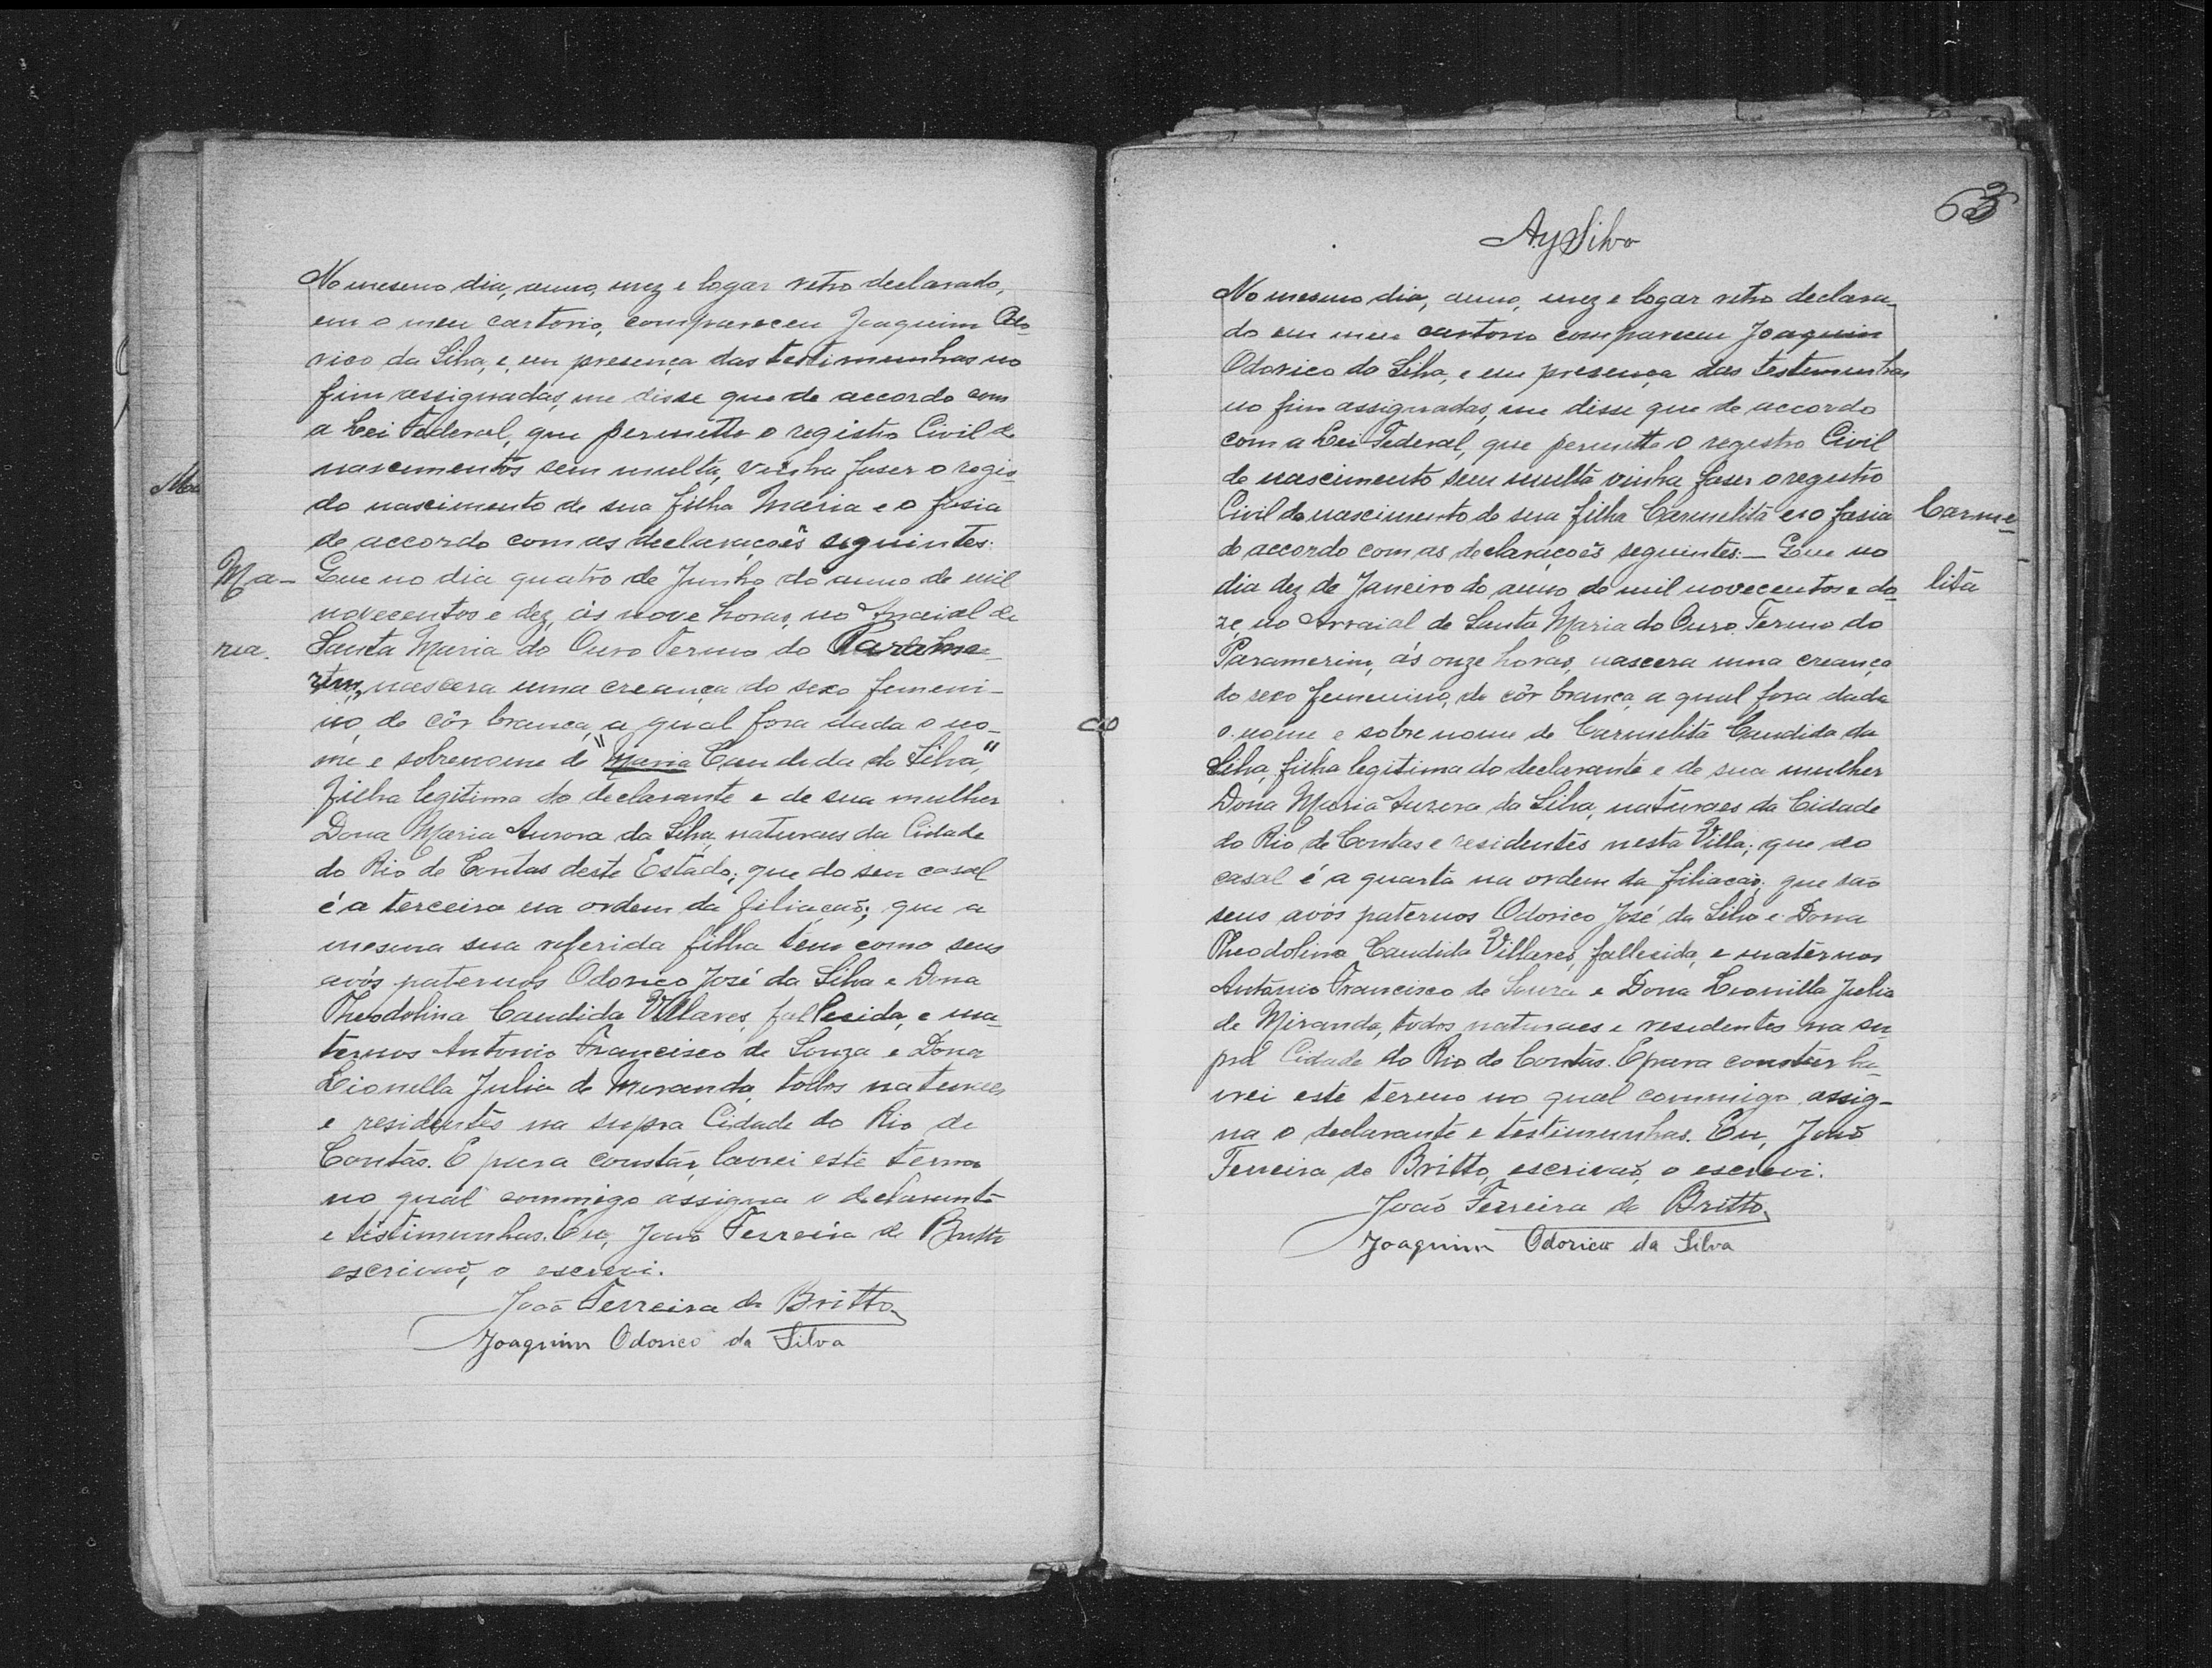 No mesmo dia, anno, mez e logar retro declarado,
em o meu cartorio, compareceu Joaquim Odo-
rico da Silva, e, em presença das testimunhas no
fim assignadas, me disse que de accordo com
a Lei Federal, que permitte o registro Civil de
nascimentos sem multa, vinha faser o regis-
do nascimento de sua filha Maria e o fasia
de accordo com as declarações seguintes:
Ma- Que no dia quatro de Junho do anno de mil
novecentos e dez, ás nove horas, no Arraial de
ria. Santa Maria do Ouro Termo do Parame-
rim, nascera uma creança do sexo femeni-
no, de côr branca, a qual fora dada o no-
me e sobrenome de "Maria Candida da Silva,"
filha legitima do declarante e de sua mulher
Dona Maria Aurora da Silva, naturaes da Cidade
do Rio de Contas deste Estado; que do seu casal
é a terceira na ordem da filiação; que a
mesma sua referida filha tem como seus
avós paternos Odorico José da Silva e Dona
Theodolina Candida Villares, fallecida, e ma-
ternos Antonio Francisco de Souza e Dona
Leonilla Julia de Miranda, todos naturaes
e residentes na supra Cidade do Rio de
Contas. E para constar, lavrei este termo
no qual commigo assigna o declarante
e testimunhas. Eu, João Ferreira de Britto
escrivão, o escrevi.
João Ferreira de Britto
Joaquim Odorico da Silva
63
AySilva
No mesmo dia, anno, mez e logar retro declara-
do em meu cartorio compareceu Joaquim
Odorico da Silva, e em presença das testemunhas
no fim assignadas, me disse que de accordo
com a Lei Federal, que permitte o registro Civil
de nascimento sem multa vinha faser o registro
Civil do nascimento de sua filha Carmelita e o fasia Carme-
de accordo com as declarações seguintes:— Que no
dia dez de Janeiro do anno de mil novecentos e do- lita
ze, no Arraial de Santa Maria do Ouro, Termo do
Paramerim, ás onze horas, nascera uma creança
do sexo femenino, de côr branca, a qual fora dada
o nome e sobre nome de Carmelita Candida da
Silva, filha legitima do declarante e de sua mulher
Dona Maria Aurora da Silva, naturaes da Cidade
do Rio de Contas e residentes nesta Villa; que do
casal é a quarta na ordem da filiação; que são
seus avós paternos Odorico José da Silva e Dona
Theodolina Candida Villares, fallecida, e maternos
Antonio Francisco de Souza e Dona Leonilla Julia
de Miranda, todos naturaes e residentes na su-
pra Cidade do Rio de Contas. E para constar la-
vrei este termo no qual commigo assig-
na o declarante e testimunhas. Eu, João
Ferreira de Britto, escrivão, o escrevi.
João Ferreira de Britto
Joaquim Odorico da Silva